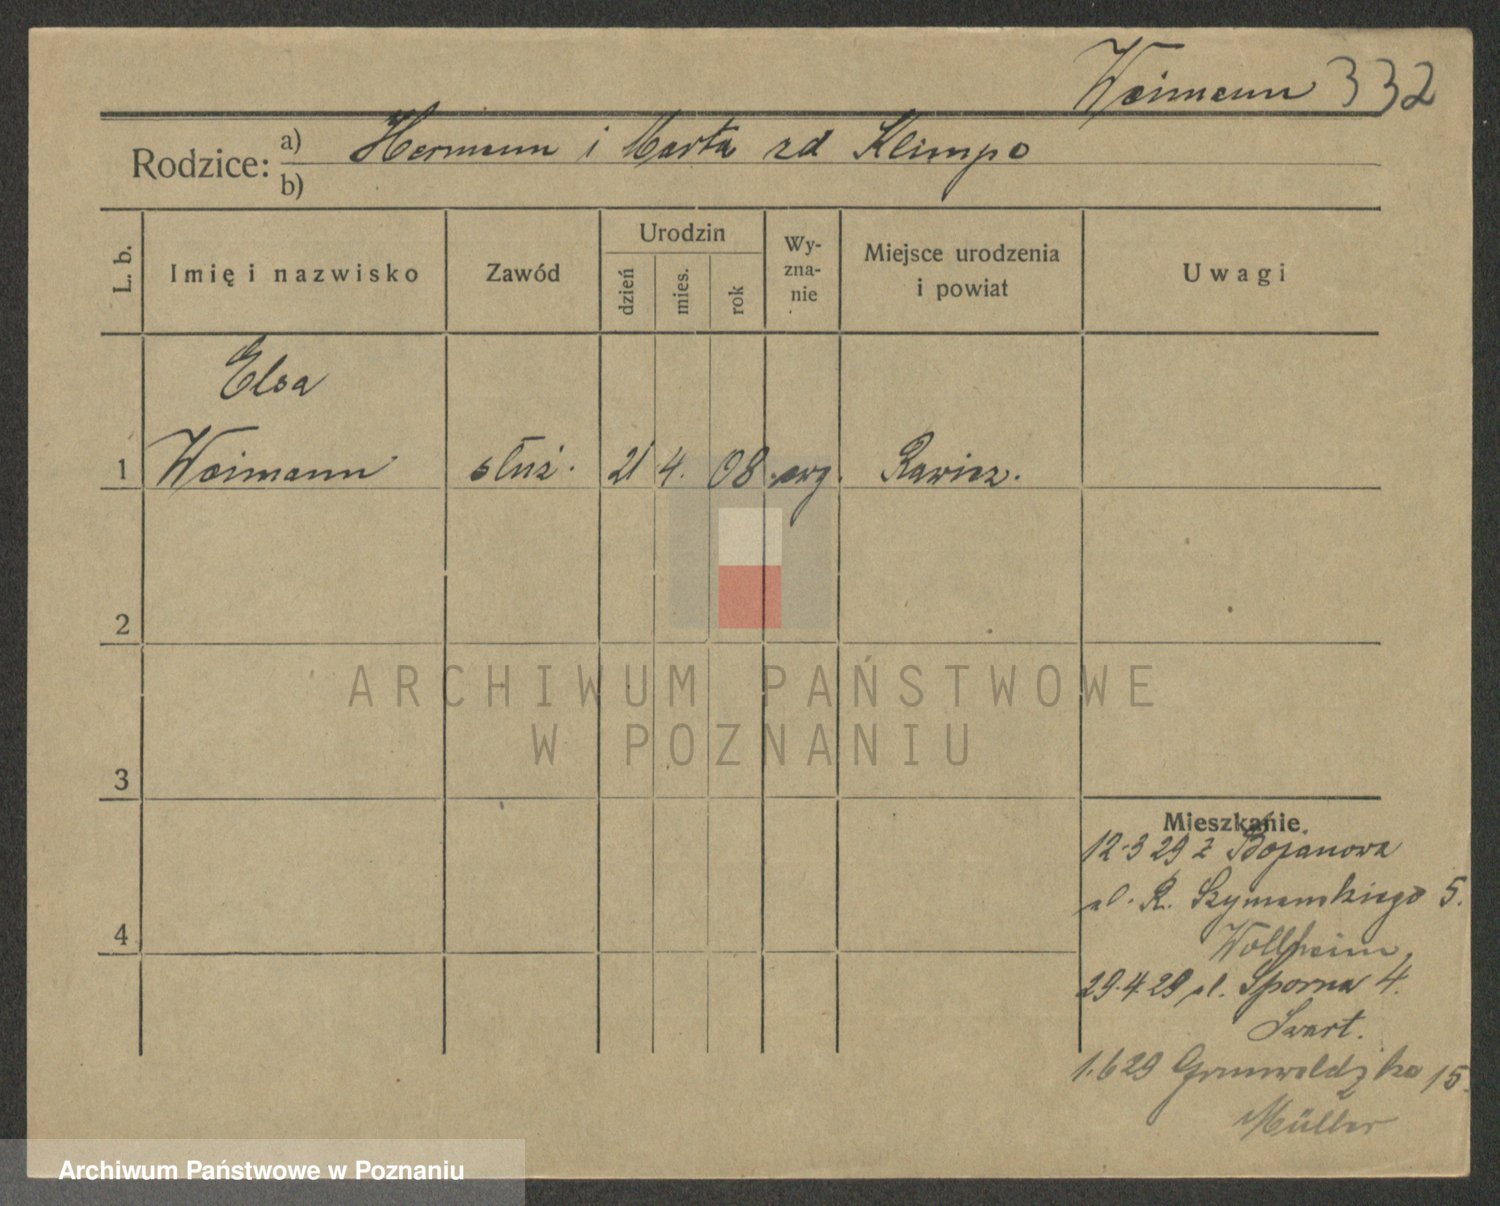 Weimann 332
Rodzice: a) Hermann i Marta zd Klimpe
b)
L. b.
Imię i nazwisko
Zawód
Urodzin
dzień
mies.
rok
Wy-
zna-
nie
Miejsce urodzenia
i powiat
Uwagi
Elsa
1 Weimann służ. 21 4. 08. ewg. Rawicz.
2
3
4
Mieszkanie.
12-3 29 z Bojanowa
ul. R. Szymanskiego 5.
Wollheim
29.4 29 ul. Sporna 4.
Swart.
1.6 29 Grunwaldzka 15.
Müller
ARCHIWUM PAŃSTWOWE
W POZNANIU
Archiwum Państwowe w Poznaniu